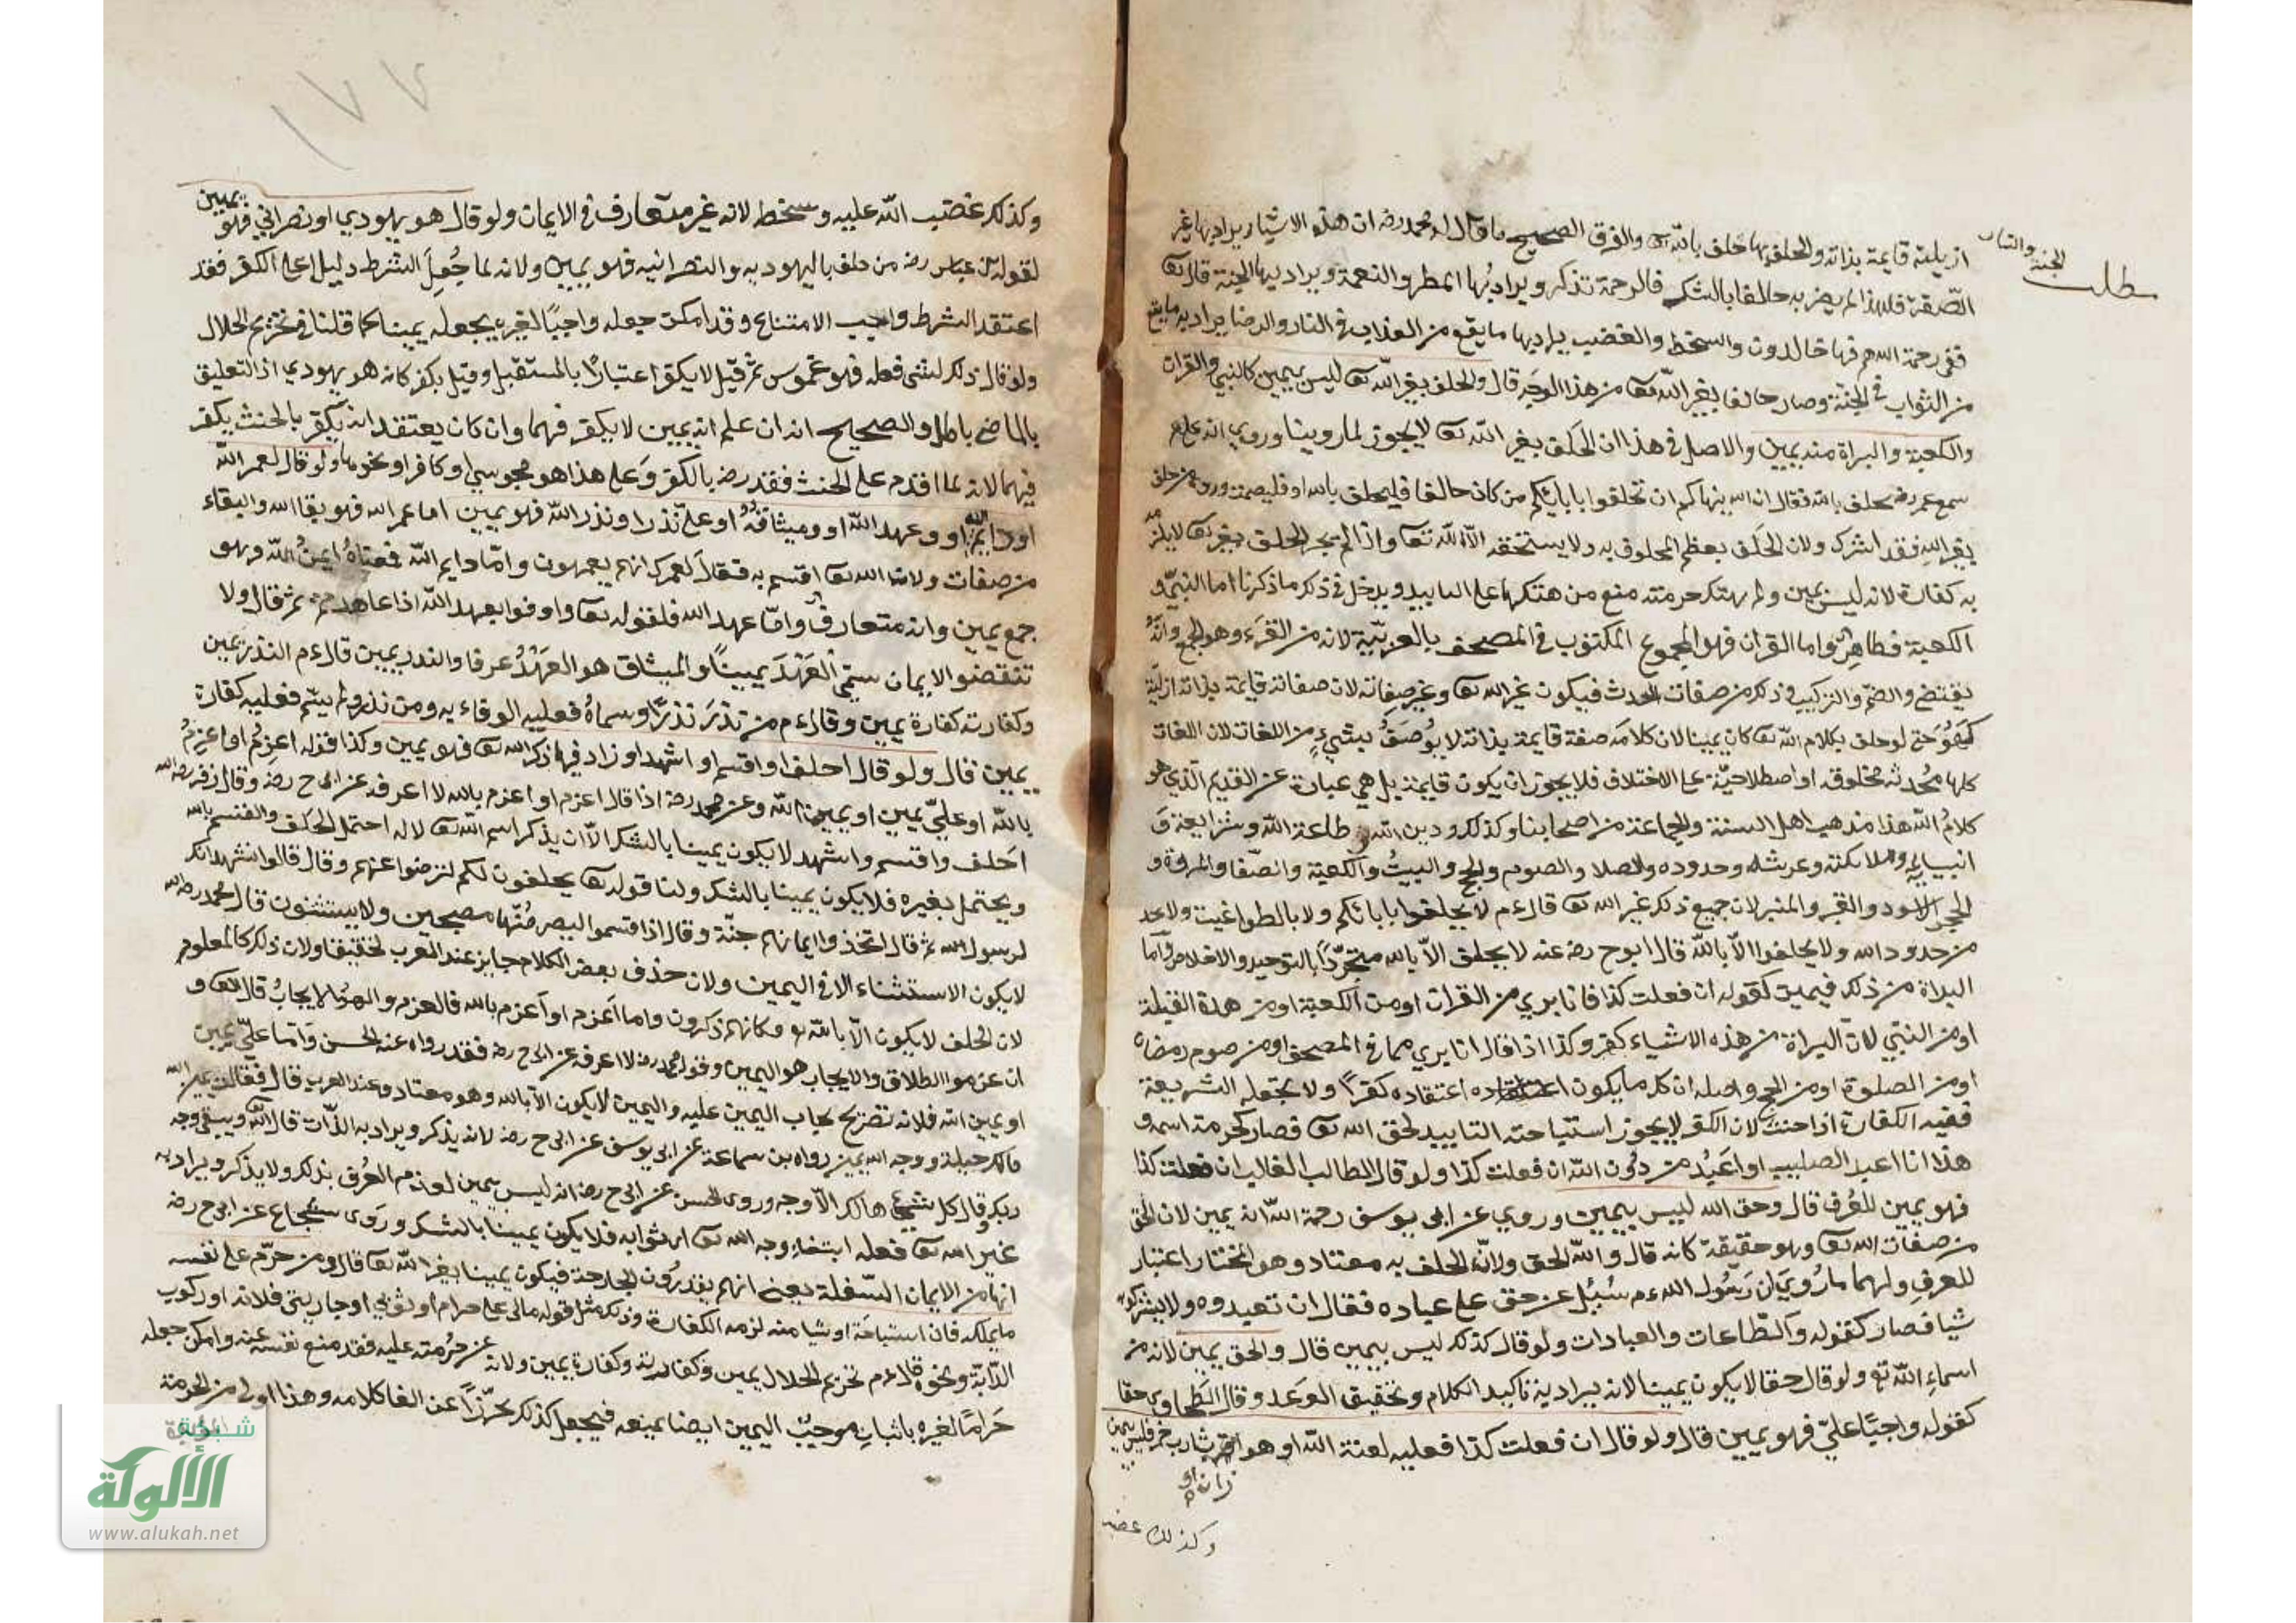 ازيلية قايمة بذاته والحلف بها حلف بالله تعا والفرق الصحيح ما قال له محمد رضه ان هذه الاشيا يراد بها غير
الصفة فلهذا لم يصر به حالفا بالشك فالرحمة تذكر ويراد بها المطر والنعمة ويراد بها الجنة قال تعا
ففي رحمة الله هم فيها خالدون والسخط والغضب يراد بها ما يقع من العذاب في النار والرضا يراد به ما يقع
من الثواب في الجنة وصار حالفا بغير الله تعا من هذا الوجه قال والحلف بغير الله تعا ليس بيمين كالنبي والقران
والكعبة والبراة منه يمين والاصل في هذا ان الحلف بغير الله تعا لا يجوز لما روينا وروي انه عليم
سمع عمر رضه يحلف بابيه فقال ان الله ينهاكم ان تحلفوا بابائكم من كان حالفا فليحلف بالله او فليصمت وروي من حلف
بغير الله فقد اشرك ولان الحلف يعظم المحلوف به ولا يستحقه الا الله تعا واذا لم يجز الحلف بغيره تعا لا يلزمه
به كفارة لانه ليس بيمين ولم يهتك حرمته منع من هتكها على التابيد ويدخل في ذلك ما ذكرنا اما النبي و
الكعبة فظاهر واما القران فهو المجموع المكتوب في المصحف بالعربية لانه من القرء وهو الجمع وانه
يقتضي والضم والتركيب وذلك من صفات الحدث فيكون غير الله تعا وغير صفاته لان صفاته قايمة بذاته ازلية
كهو حتى لو حلف بكلام الله تعا كان يمينا لان كلامه صفة قايمة بذاته لا يوصف بشيء من اللغات لان اللغات
كلها محدثه مخلوقه او اصطلاحية على الاختلاف فلا يجوز ان يكون قايمة بل هي عبارة عن القديم الذي هو
كلام الله هذا مذهب اهل السنة والجماعة من اصحابنا وكذلك ودين الله وطاعة الله وشرايعة و
انبيائه وملائكته وعرشه وحدوده والصلا والصوم والحج والبيت والكعبة والصفا والمروة و
الحجر الاسود والقبر والمنبر لان جميع ذلك غير الله تعا قال ءم لا يحلفوا بابائكم ولا بالطواغيت ولا بحد
من حدود الله ولا يحلفوا الا بالله قال ابوح رضه عنه لا يحلف الا بالله متجردا بالتوحيد والاخلاص واما
البراة من ذلك فيمين كقوله ان فعلت كذا فانا بري من القران او من الكعبة او من هذه القبلة
او من النبي لان البراة من هذه الاشياء كفر وكذا اذا قال انا بري مما في المصحف او من صوم رمضان
او من الصلوة او من الحج واصله ان كل ما يكون اعتقاده كفرا ولا تحله الشريعة
ففيه الكفارة اذا حنث لان الكفر لا يجوز استباحته التابيد لحق الله تعا فصار كحرمة اسمه و
هذا انا اعبد الصليب او اعبد من دون الله ان فعلت كذا ولو قال الطالب الغالب ان فعلت كذا
فهو يمين للعرف قال وحق الله ليس بيمين وروي عن ابى يوسف رحمة الله انه يمين لان الحق
من صفات الله تعا وهو حقيقة كانه قال والله الحق ولان الحلف به معتاد وهو المختار اعتبار
للعرف ولهما ما روي ان رسول الله ءم سئل عن حق على عباده فقال ان تعبدوه ولا يشركوا به
شيا فصار كقوله والطاعات والعبادات ولو قال كذلك ليس بيمين قال والحق يمين لانه من
اسماء الله تع ولو قال حقا لا يكون يمينا لانه يراد به تاكيد الكلام وتحقيق الوعد وقال الطحاوي حقا
كقوله واجبا علي فهو يمين قال ولو قال ان فعلت كذا فعليه لعنة الله او هو شارب خمر فليس بيمين
زان او
وكذلك غضب
مطلب
الجنة والنار
١٧٧
وكذلك غضب الله عليه وسخط لانه غير متعارف في الايمان ولو قال هو يهودي او نصراني فهو يمين
لقوله ابن عباس رضه من حلف باليهوديه والنصرانيه فهو يمين ولانه لما جعل الشرط دليل على الكفر فقد
اعتقد الشرط واجب الامتناع وقد امكن جعله واجبا لغيره يجعله يمينا كما قلنا في تحريم الحلال
ولو قال ذلك لشئ فعله فهو غموس ثم قيل لا يكفر اعتبارا بالمستقبل وقيل يكفر كانه هو يهودي اذ التعليق
بالماضي باطل والصحيح انه ان علم انه يمين لا يكفر فيهما وان كان يعتقد انه يكفر بالحنث يكفر
فيهما لانه لما اقدم على الحنث فقد رضه بالكفر وعلى هذا هو مجوسي او كافر او نحوهما ولو قال لعمر الله
او وايم الله او وعهد الله او وميثاقه او علي نذر او نذر الله فهو يمين اما عمر الله فهو بقا الله والبقاء
من صفات ولان الله تعا اقسم به فقال لعمرك انهم يعمهون واما وايم الله فمعناه ايمن الله وهو
جمع يمين وانه متعارف واما عهد الله فلقوله تعا واوفوا بعهد الله اذا عاهدتم ثم قال ولا
تنقضوا الايمان سمى العهد يمينا والميثاق هو العهد عرفا والنذر يمين قال ءم النذر يمين
وكفارته كفارة يمين وقال ءم من نذر نذرا وسماه فعليه الوفاء به ومن نذر ولم يسم فعليه كفارة
يمين قال ولو قال احلف او اقسم او اشهد او زاد فيها ذكر الله تعا فهو يمين وكذا قوله اعزم او اعزم
بالله او علي يمين او يمين الله وعن محمد رضه اذا قال اعزم او اعزم بالله لا اعرفه عن ابي ح رضه وقال زفر رضه الله
احلف واقسم واشهد لا يكون يمينا بالشك الا ان يذكر اسم الله تعا لانه احتمل الحلف والقسم بالله
ويحتمل بغيره فلا يكون يمينا بالشك ولنا قوله تعا يحلفون لكم لترضوا عنهم وقال قالوا نشهد انك
لرسول الله ثم قال اتخذوا ايمانهم جنة وقال اذ اقسموا ليصرمنها مصبحين ولا يستثنون قال محمد رضه الله
لا يكون الاستثناء الا في اليمين ولان حذف بعض الكلام جايز عند العرب تخفيفا ولان ذلك كالمعلوم
لان الحلف لا يكون الا بالله تع فكانهم ذكرون واما اعزم او اعزم بالله فالعزم والهو الايجاب قال تعا و
ان عزموا الطلاق والايجاب هو اليمين وقول محمد رضه لا اعرفه عن ابي ح رضه فقد رواه عنه الحسن واما علي يمين
او يمين الله فلانه تصريح يجاب اليمين عليه واليمين لا يكون الا بالله وهو معتاد وعند العرب قال فقالت يمين الله
مالك حيلة ووجه الله يمين رواه بن سماعة عن ابي يوسف عن ابي ح رضه لانه يذكر ويراد به الذات قال الله ويبقى وجه
ربك وقال كل شيئ هالك الا وجه وروى الحسن عن ابي ح رضه انه ليس بيمين لعدم العرف بذلك ولا يذكر ويراد به
غير الله تعا فعله ابتغاء وجه الله تعا اي ثوابه فلا يكون يمينا بالشك وروى شجاع عن ابي ح رضه
انها من الايمان السفلة يعني انهم يقدرون الجارحة فيكون يمينا بغير الله تعا قال ومن حرم على نفسه
مايملكه فان استباحه او شيا منه لزمه الكفارة وذلك مثل قوله مالى على حرام او ثوبي او جاريتي فلانه او ركوب
الدابة ونحوه قال ءم تحريم الحلال يمين وكفارته وكفارة يمين ولانه عن حرمته عليه فقد منع نفسه عنه وامكن جعله
حراما لغيره باثبات موجب اليمين ايضا يمنعه فيجعل كذلك تحرزا عن الغا كلامه وهذا اولى من الحرمة
شبكة
الألوكة
www.alukah.net